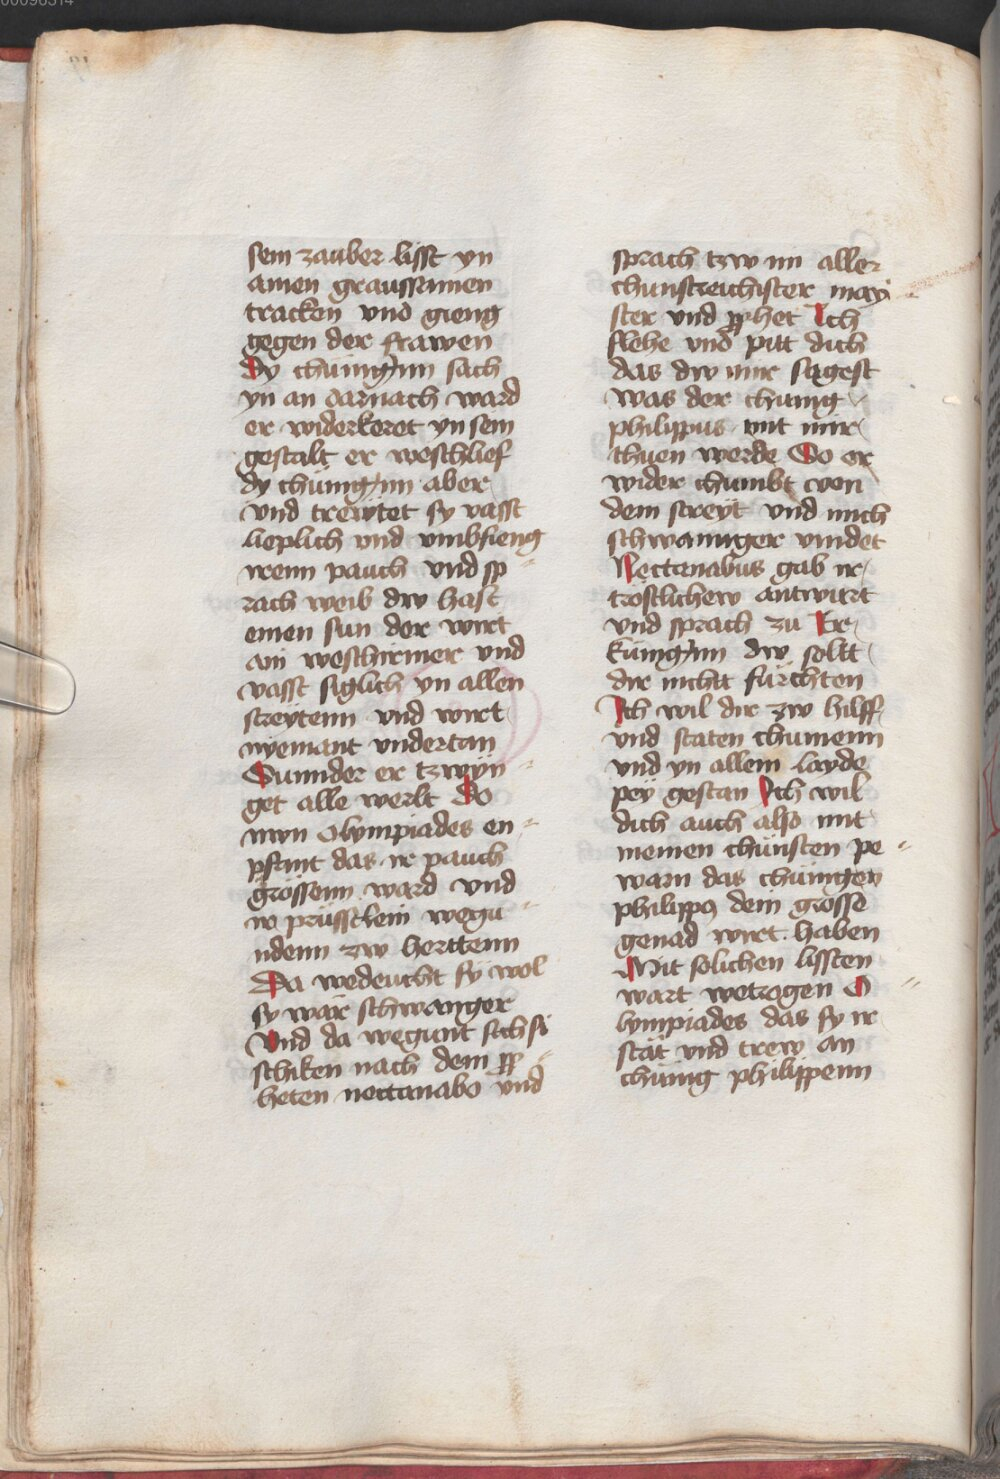 sein zauber lisst yn
ainen graussamen
tracken vnd gieng
gegen der frawen
Dy chüniginn sach
yn an darnach ward
er widerkeret yn sein
gestalt er weschlief
dy chüniginn aber
vnd trewtet sy vasst
lieplich vnd vmbfieng
irenn pauch vnd sp
rach weib dw hast
einen sun der wirt
ain weschirmer vnd
vasst siglich yn allen
streytenn vnd wirt
nyemant vndertan
Sunnder er tzwyn
get alle werlt Do
nwn Olympiades en
pfant das ir pauch
grössenn ward vnd
ir prüsstlein wegu
ndenn zw herttenn
Da wedeucht sy wol
sy war schwanger
Vnd da wegunt sich si
schiken nach dem pp
heten nectanabo vnd
sprach tzw im aller
chunstreichister may
ster vnd pphet Ich
flehe vnd pitt dich
das dw mir sagest
was der chunig
philippus mit mir
thuen werde So er
wider chumbt von
dem streyt vnd mich
schwanger vindet
Nectanabus gab ir
tröstlichew antwurt
vnd sprach zu Er
küniginn dw soltt
dir nichtt fürchten
Ich wil dir zw hilff
vnd staten chumenn
vnd yn allem layde
pey gestan Ich wil
dich auch also mit
meinen chünsten pe
warn das chünigen
philippo dein grosse
genad wirt haben
Mit solichen lissten
wart wetrogen O
lympiades das sy ir
stät vnd trew an
chünig philippenn